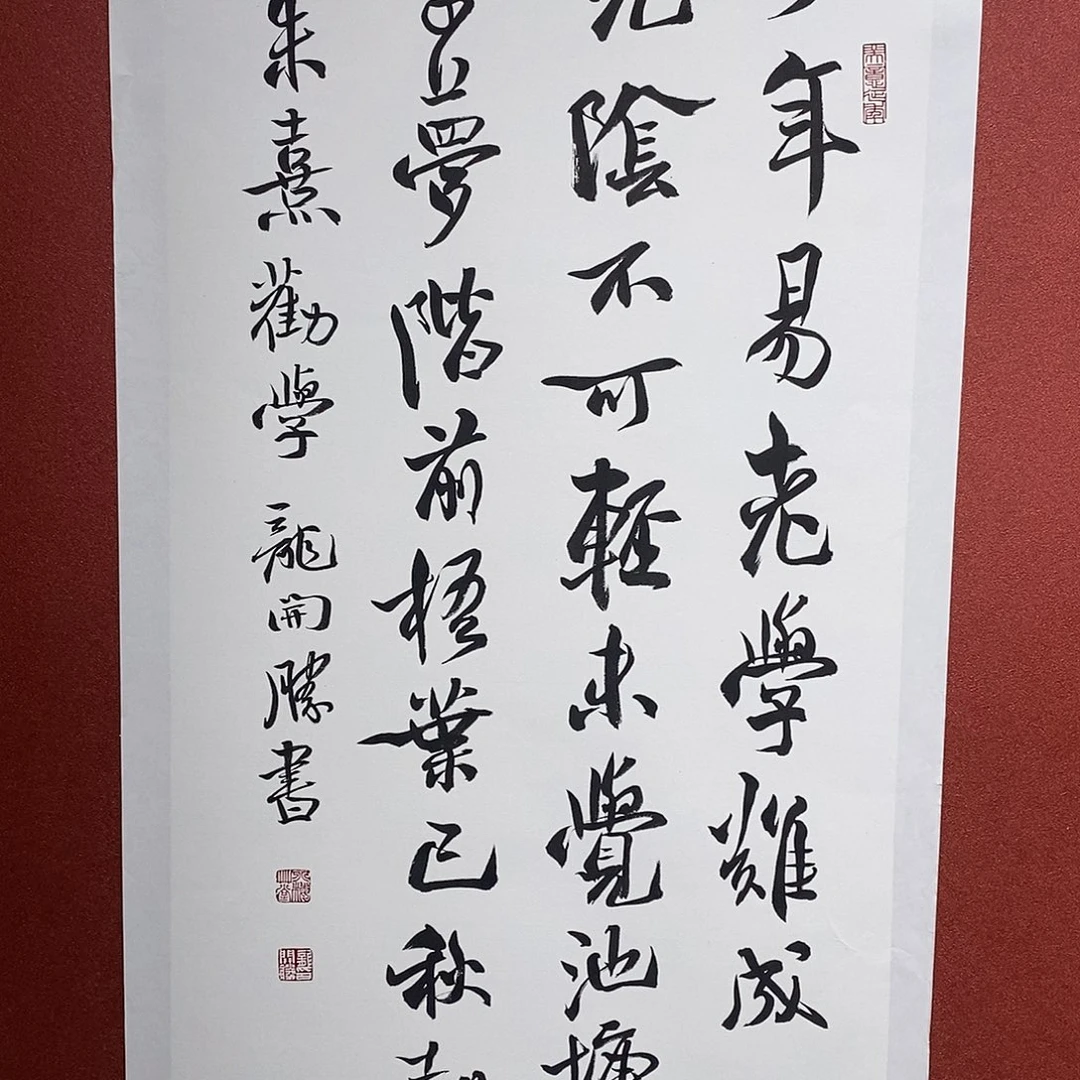 年易老學難成
光陰不可輕未覺池塘
夢階前梧葉已秋
朱熹勸學 龍開勝書